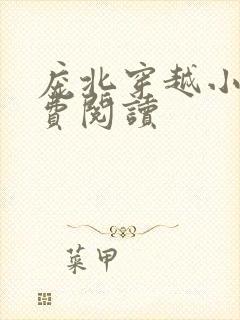 庇北穿越小
費閱讀
菜甲